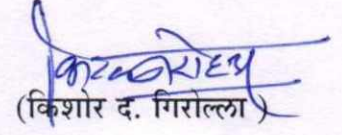 (किशोर द. गिरोल्ला)